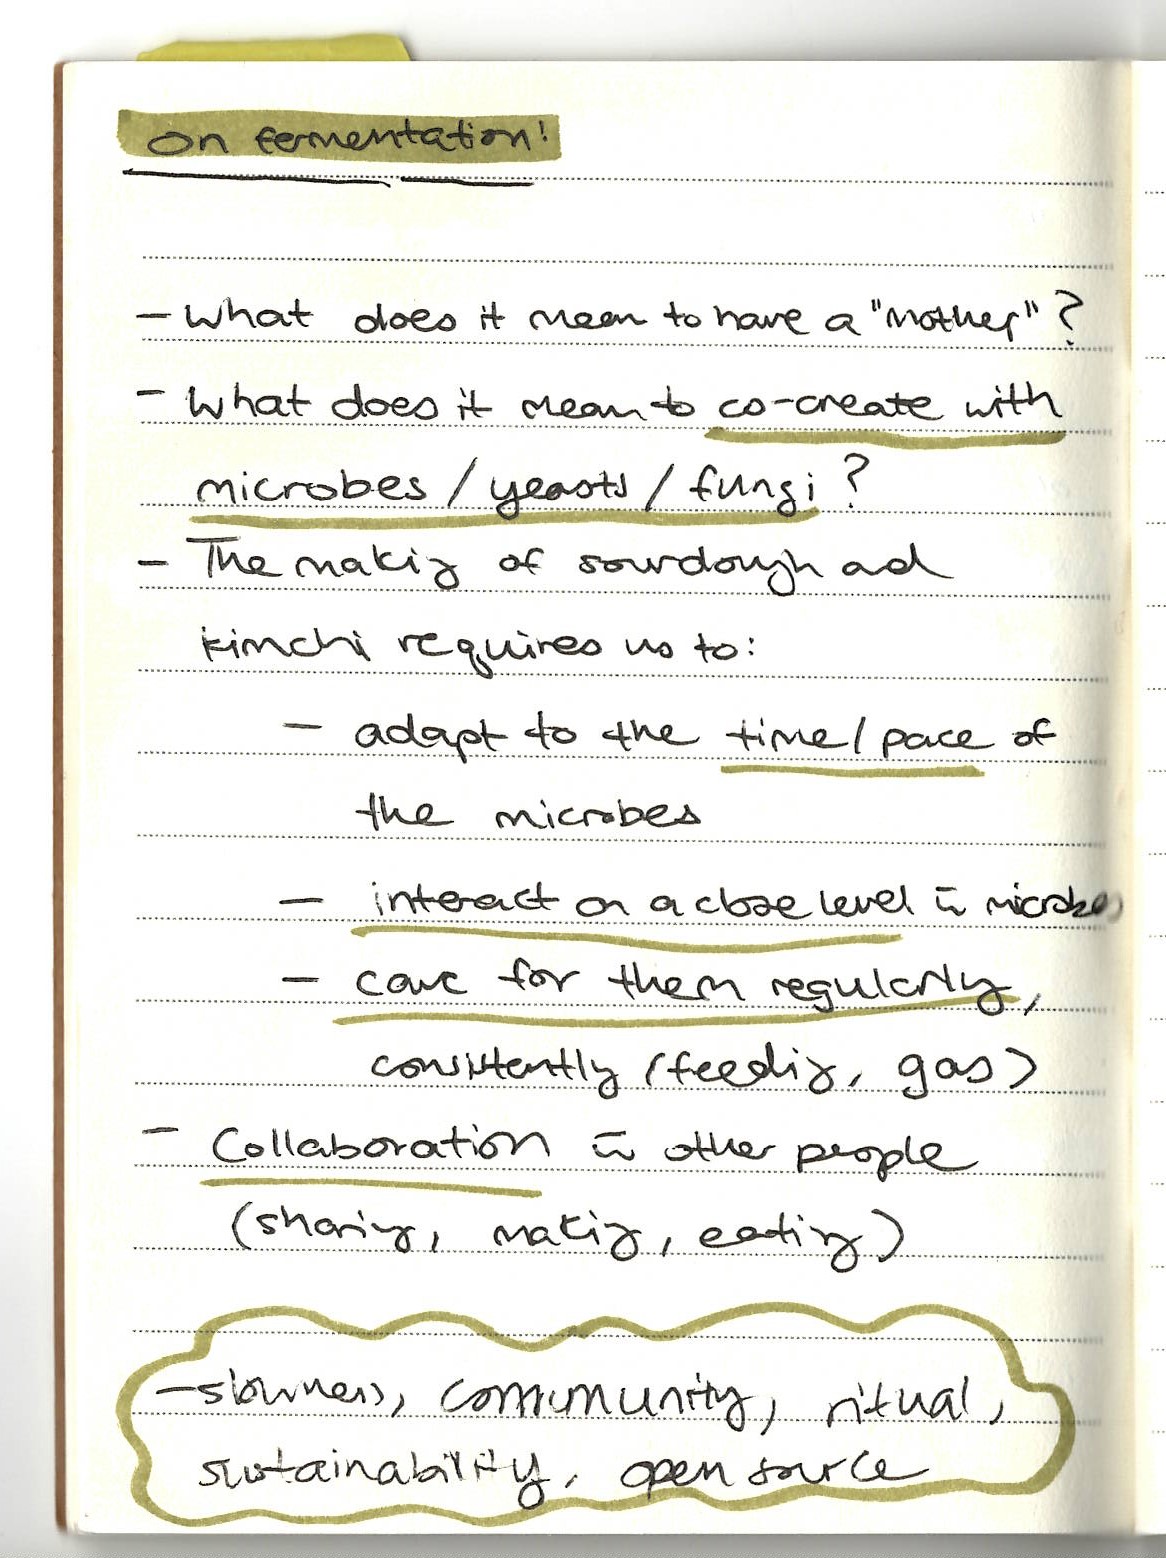 on fermentation!
- What does it mean to have a "mother"?
- What does it mean to co-create with
microbes / yeasts / fungi?
- The making of sourdough and
kimchi requires us to:
- adapt to the time / pace of
the microbes
- interact on a close level c̄ microbes
- care for them regularly,
consistently (feeding, gas)
- Collaboration c̄ other people
(sharing, making, eating)
- slowness, community, ritual,
sustainability, open source